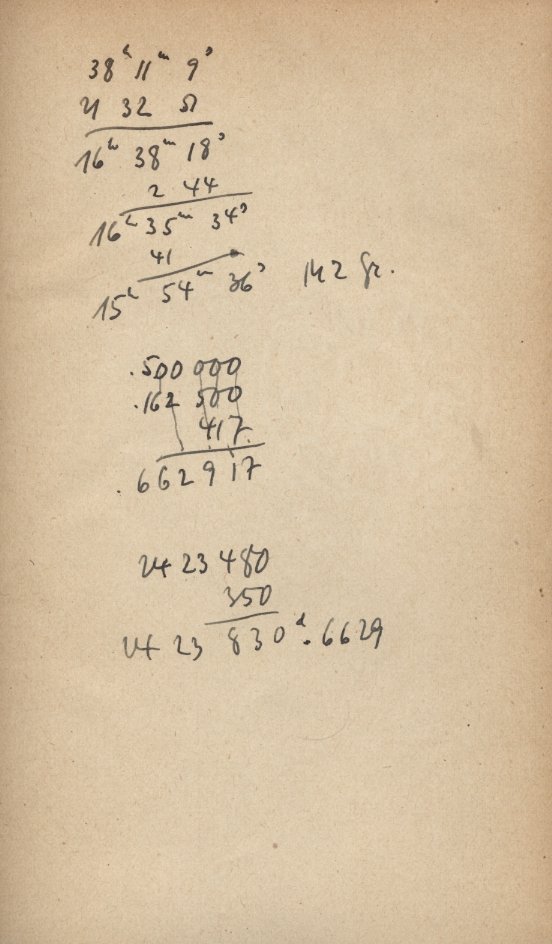 38ʰ 11ᵐ 9ˢ
21 32 51
16ʰ 38ᵐ 18ˢ
2 44
16ʰ 35ᵐ 34ˢ
41
15ʰ 54ᵐ 36ˢ M Z Gr.
.500 000
.162 500
417
.662 917
24 23 480
350
24 23 830ᵈ.6629